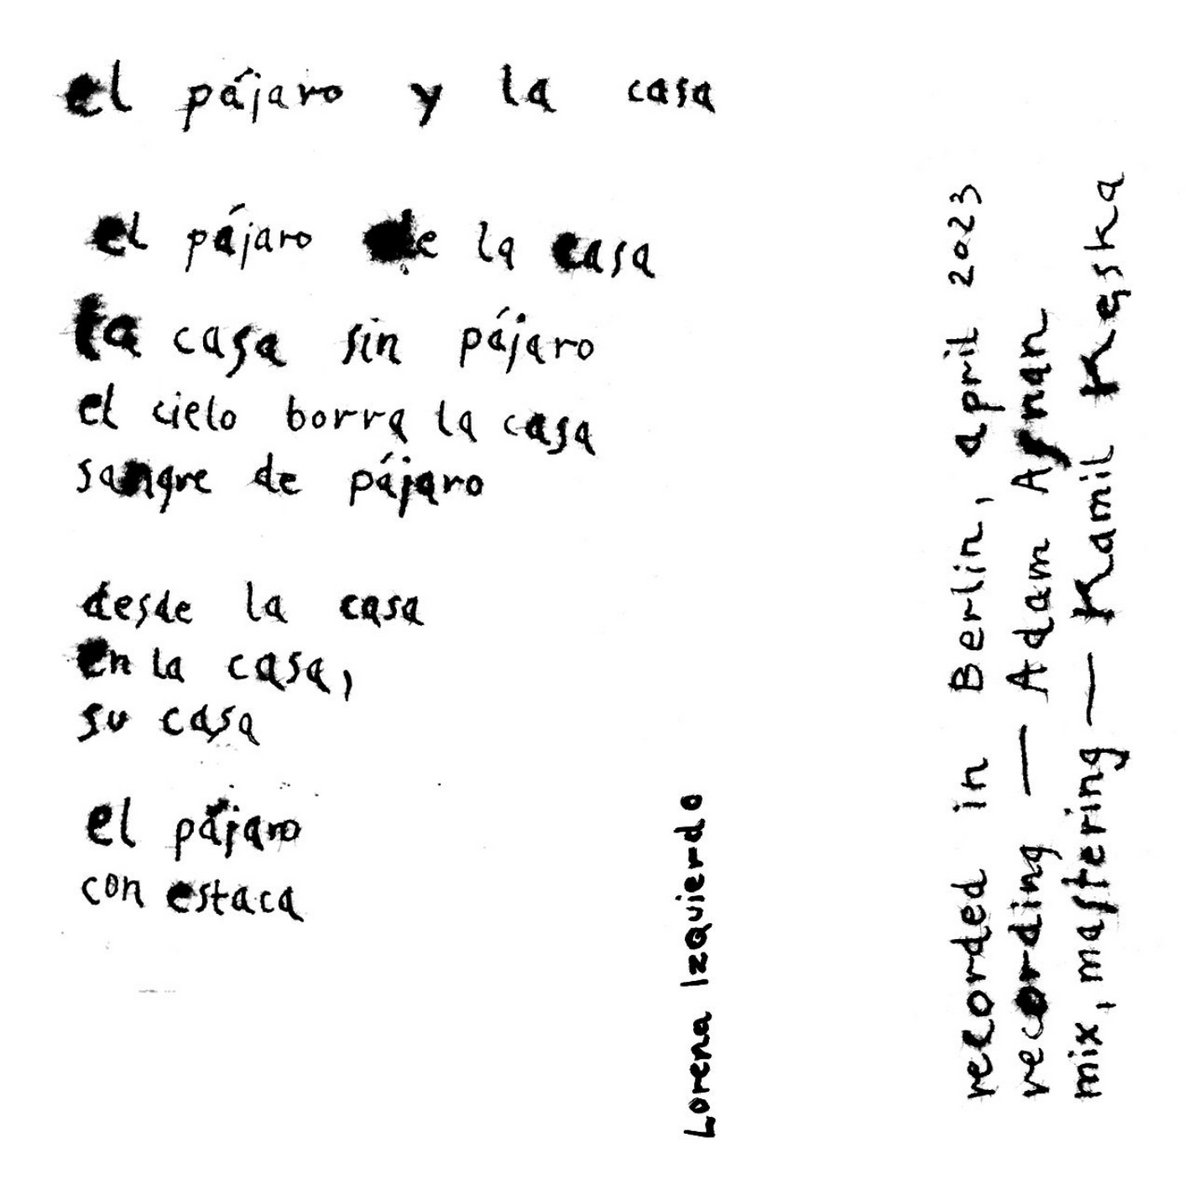 el pájaro y la casa
el pájaro de la casa
la casa sin pájaro
el cielo borra la casa
sangre de pájaro
desde la casa
en la casa,
su casa
el pájaro
con estaca
Lorena Izquierdo
recorded in Berlin, april 2023
recording — Adam Asnan
mix, mastering — Kamil Kęska